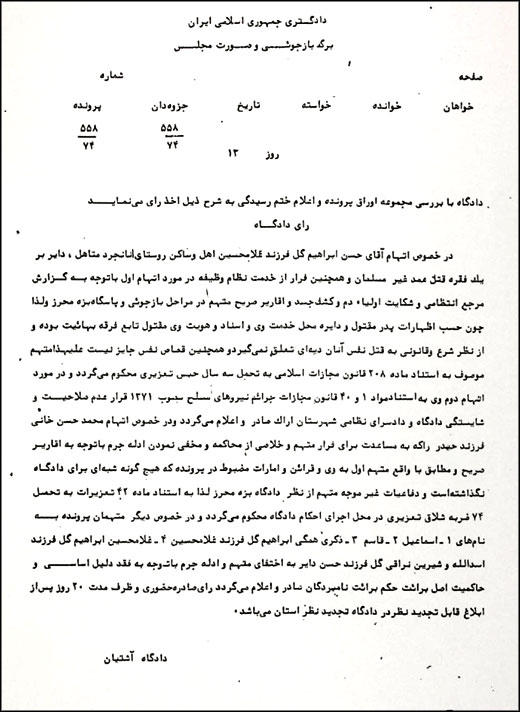 دادگستری جمهوری اسلامی ایران
برگ بازجوئی و صورت مجلس
صفحه شماره
خواهان خوانده خواسته تاریخ جزوه‌دان پرونده
۵۵۸ ۵۵۸
۷۴ ۷۴
روز ۱۳
دادگاه با بررسی مجموعه اوراق پرونده و اعلام ختم رسیدگی به شرح ذیل اخذ رای می‌نماید
رای دادگاه
در خصوص اتهام آقای حسن ابراهیم گل فرزند غلامحسین اهل وساکن روستای انجرد متاهل ، دایر بر
یك فقره قتل عمد غیر مسلمان و همچنین فرار از خدمت نظام وظیفه در مورد اتهام اول باتوجه به گزارش
مرجع انتظامی و شکایت اولیاء دم و کشف جسد و اقاریر صریح متهم در مراحل بازجوئی و پاسگاه بزه محرز ولذا
چون حسب اظهارات پدر مقتول و دایره محل خدمت وی و اسناد و هویت وی مقتول تابع فرقه بهائیت بوده و
از نظر شرع وقانونی به قتل نفس آنان دیه‌ای تعلق نمی‌گیرد و همچنین قصاص نفس جایز نیست علیهذا متهم
موصوف به استناد ماده ۲۰۸ قانون مجازات اسلامی به تحمل سه سال حبس تعزیری محکوم می‌گردد و در مورد
اتهام دوم وی به استناد مواد ۱ و ۴۰ قانون مجازات جرائم نیروهای مسلح مصوب ۱۳۷۱ قرار عدم صلاحیت و
شایستگی دادگاه و دادسرای نظامی شهرستان اراك صادر و اعلام می‌گردد ودر خصوص اتهام محمد حسن خانی
فرزند حیدر راکه به مساعدت برای فرار متهم و خلاصی از محاکمه و مخفی نمودن ادله جرم باتوجه به اقاریر
صریح و مطابق با واقع متهم اول به وی و قرائن و امارات مضبوط در پرونده که هیچ گونه شبه‌ای برای دادگاه
نگذاشته‌است و دفاعیات غیر موجه متهم از نظر دادگاه بزه محرز لذا به استناد ماده ۴۲ تعزیرات به تحمل
۷۴ ضربه شلاق تعزیری در محل اجرای احکام دادگاه محکوم می‌گردد و در خصوص دیگر متهمان پرونده به
نام‌های ۱ ـ اسماعیل ۲ ـ قاسم ۳ ـ ذکری همگی ابراهیم گل فرزند غلامحسین ۴ ـ غلامحسین ابراهیم گل فرزند
اسدالله و شیرین نراقی گل فرزند حسن دایر به اختفای متهم و ادله جرم باتوجه به فقد دلیل اساسی و
حاکمیت اصل برائت حکم برائت نامبردگان صادر و اعلام می‌گردد رای صادره حضوری و ظرف مدت ۲۰ روز پس از
ابلاغ قابل تجدید نظر در دادگاه تجدید نظر استان می‌باشد۰
دادگاه آشتیان